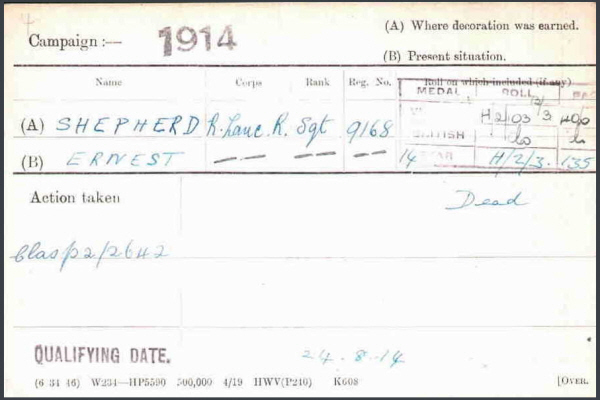 4
Campaign :— 1914
(A) Where decoration was earned.
(B) Present situation.
Name Corps Rank Reg. No. Roll on which included (if any)
MEDAL ROLL
(A) SHEPHERD R. Lanc. R. Sgt 9168
H/2/103
BRITISH do do
(B) ERNEST — — — — — 14 STAR H/2/3. 135
Action taken Dead
Clasp 2/2642
QUALIFYING DATE. 24-8-14
(6 34 46) W234—HP5590 500,000 4/19 HWV(P240) K608 [OVER.